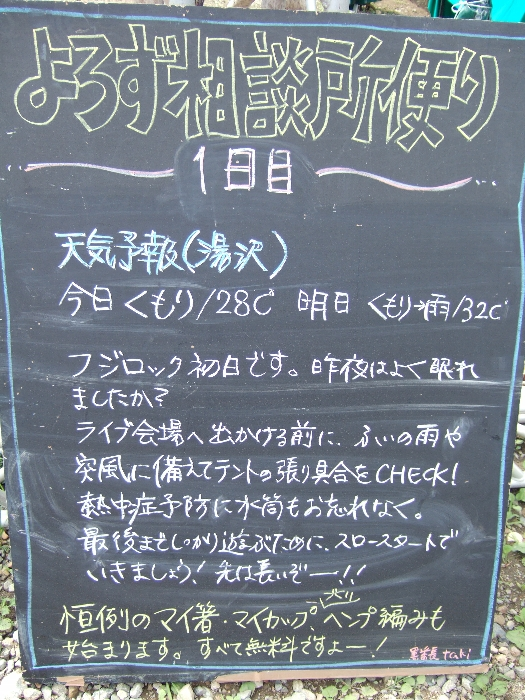 よろず相談所便り
1日目
天気予報(湯沢)
今日くもり/28℃ 明日くもり→雨/32℃
フジロック初日です。昨夜はよく眠れ
ましたか?
ライブ会場へ出かける前に、ふいの雨や
突風に備えてテントの張り具合をCHECK!
熱中症予防に水筒もお忘れなく。
最後までしっかり遊ぶために、スロースタートで
いきましょう!先は長いぞー!!
恒例のマイ箸・マイカップ、ヘンプ編みも
始まります。すべて無料ですよー!
taki